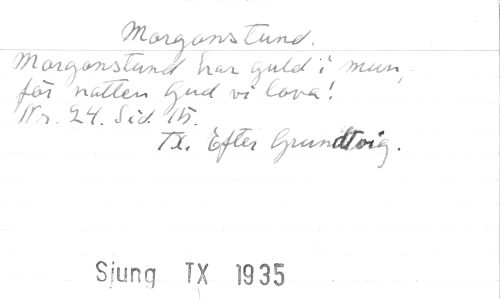 Morgonstund.
Morgonstund har guld i mun,
för natten Gud vi lova!
Nr. 24. Sid. 15.
TX. Efter Grundtvig.
Sjung TX 1935